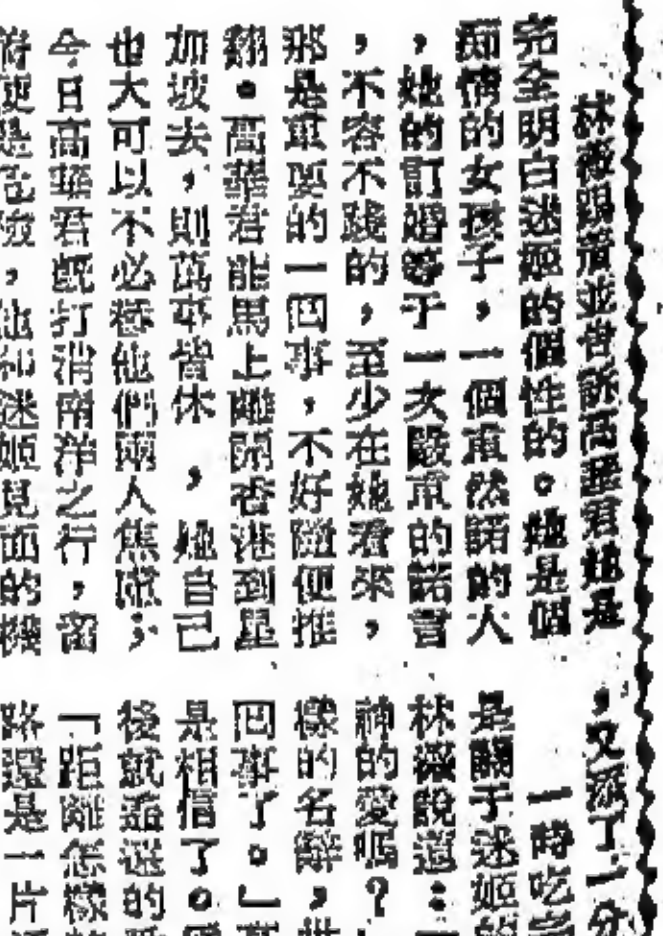 林薇跟着並告訴高華君她是
完全明白迷姬的個性的。她是個
痴情的女孩子，一個重然諾的人
，她的訂婚等于一次嚴重的諾言
，不容不踐的，至少在她看來，
那是重要的一囘事，不好隨便推
翻。高華君能馬上離開香港到星
加坡去，則萬事皆休，她自己
也大可以不必替他們兩人焦慮；
今日高華君旣打消南洋之行，留
便是危險，他和迷姬見面的機
，又添了一分
一時吃完
是關于迷姬的
林薇說道：
神的愛嗎？
樣的名辭，世
囘事了。」高
是相信了。
後就追逐的
「距離怎樣
路還是一片